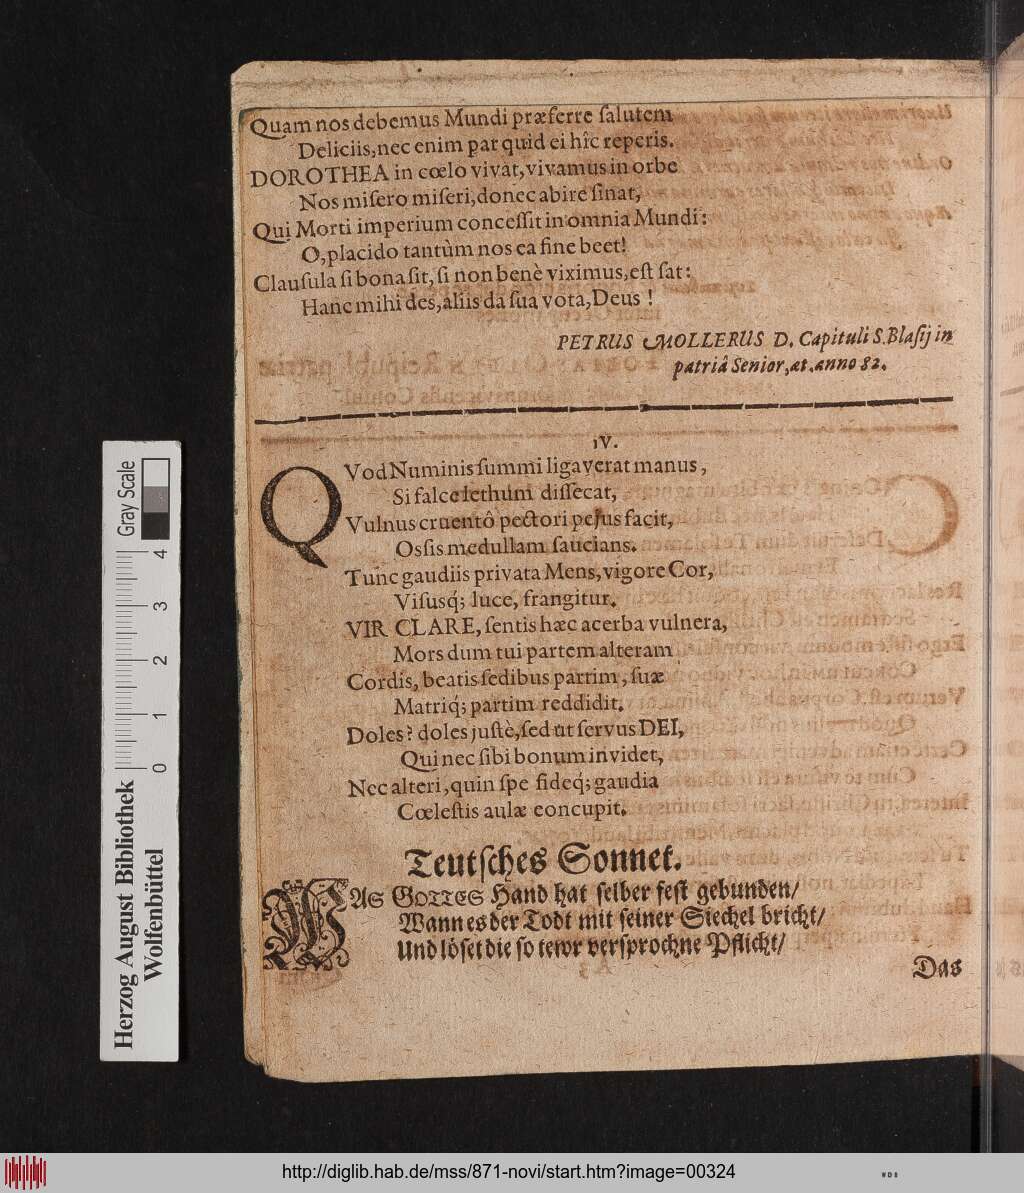 Quam nos debemus Mundi præferre ſalutem
Deliciis, nec enim par quid ei hîc reperis.
DOROTHEA in cœlo vivat, vivamus in orbe
Nos miſero miſeri, donec abire ſinat,
Qui Morti imperium conceſſit in omnia Mundi:
O, placido tantùm nos ea fine beet!
Clauſula ſi bona ſit, ſi non benè viximus, eſt ſat:
Hanc mihi des, aliis da ſua vota, Deus!
PETRUS MOLLERUS D. Capituli S. Blaſij in
patriâ Senior, æt. anno 82.
IV.
QVod Numinis ſummi ligaverat manus,
Si falce lethum diſſecat,
Vulnus cruentô pectori pejus facit,
Oſsis medullam ſaucians.
Tunc gaudiis privata Mens, vigore Cor,
Viſusq́; luce, frangitur.
VIR CLARE, ſentis hæc acerba vulnera,
Mors dum tui partem alteram
Cordis, beatis ſedibus partim, ſuæ
Matriq́; partim reddidit.
Doles? doles juſtè, ſed ut ſervus DEI,
Qui nec ſibi bonum invidet,
Nec alteri, quin ſpe fideq́; gaudia
Cœleſtis aulæ concupit.
Teutſches Sonnet.
WAS GOTTES Hand hat ſelber feſt gebunden/
Wann es der Todt mit ſeiner Siechel bricht/
Und löſet die ſo tewr verſprochne Pflicht/
Das
Herzog August Bibliothek
Wolfenbüttel
0 1 2 3 4
Gray Scale
http://diglib.hab.de/mss/871-novi/start.htm?image=00324